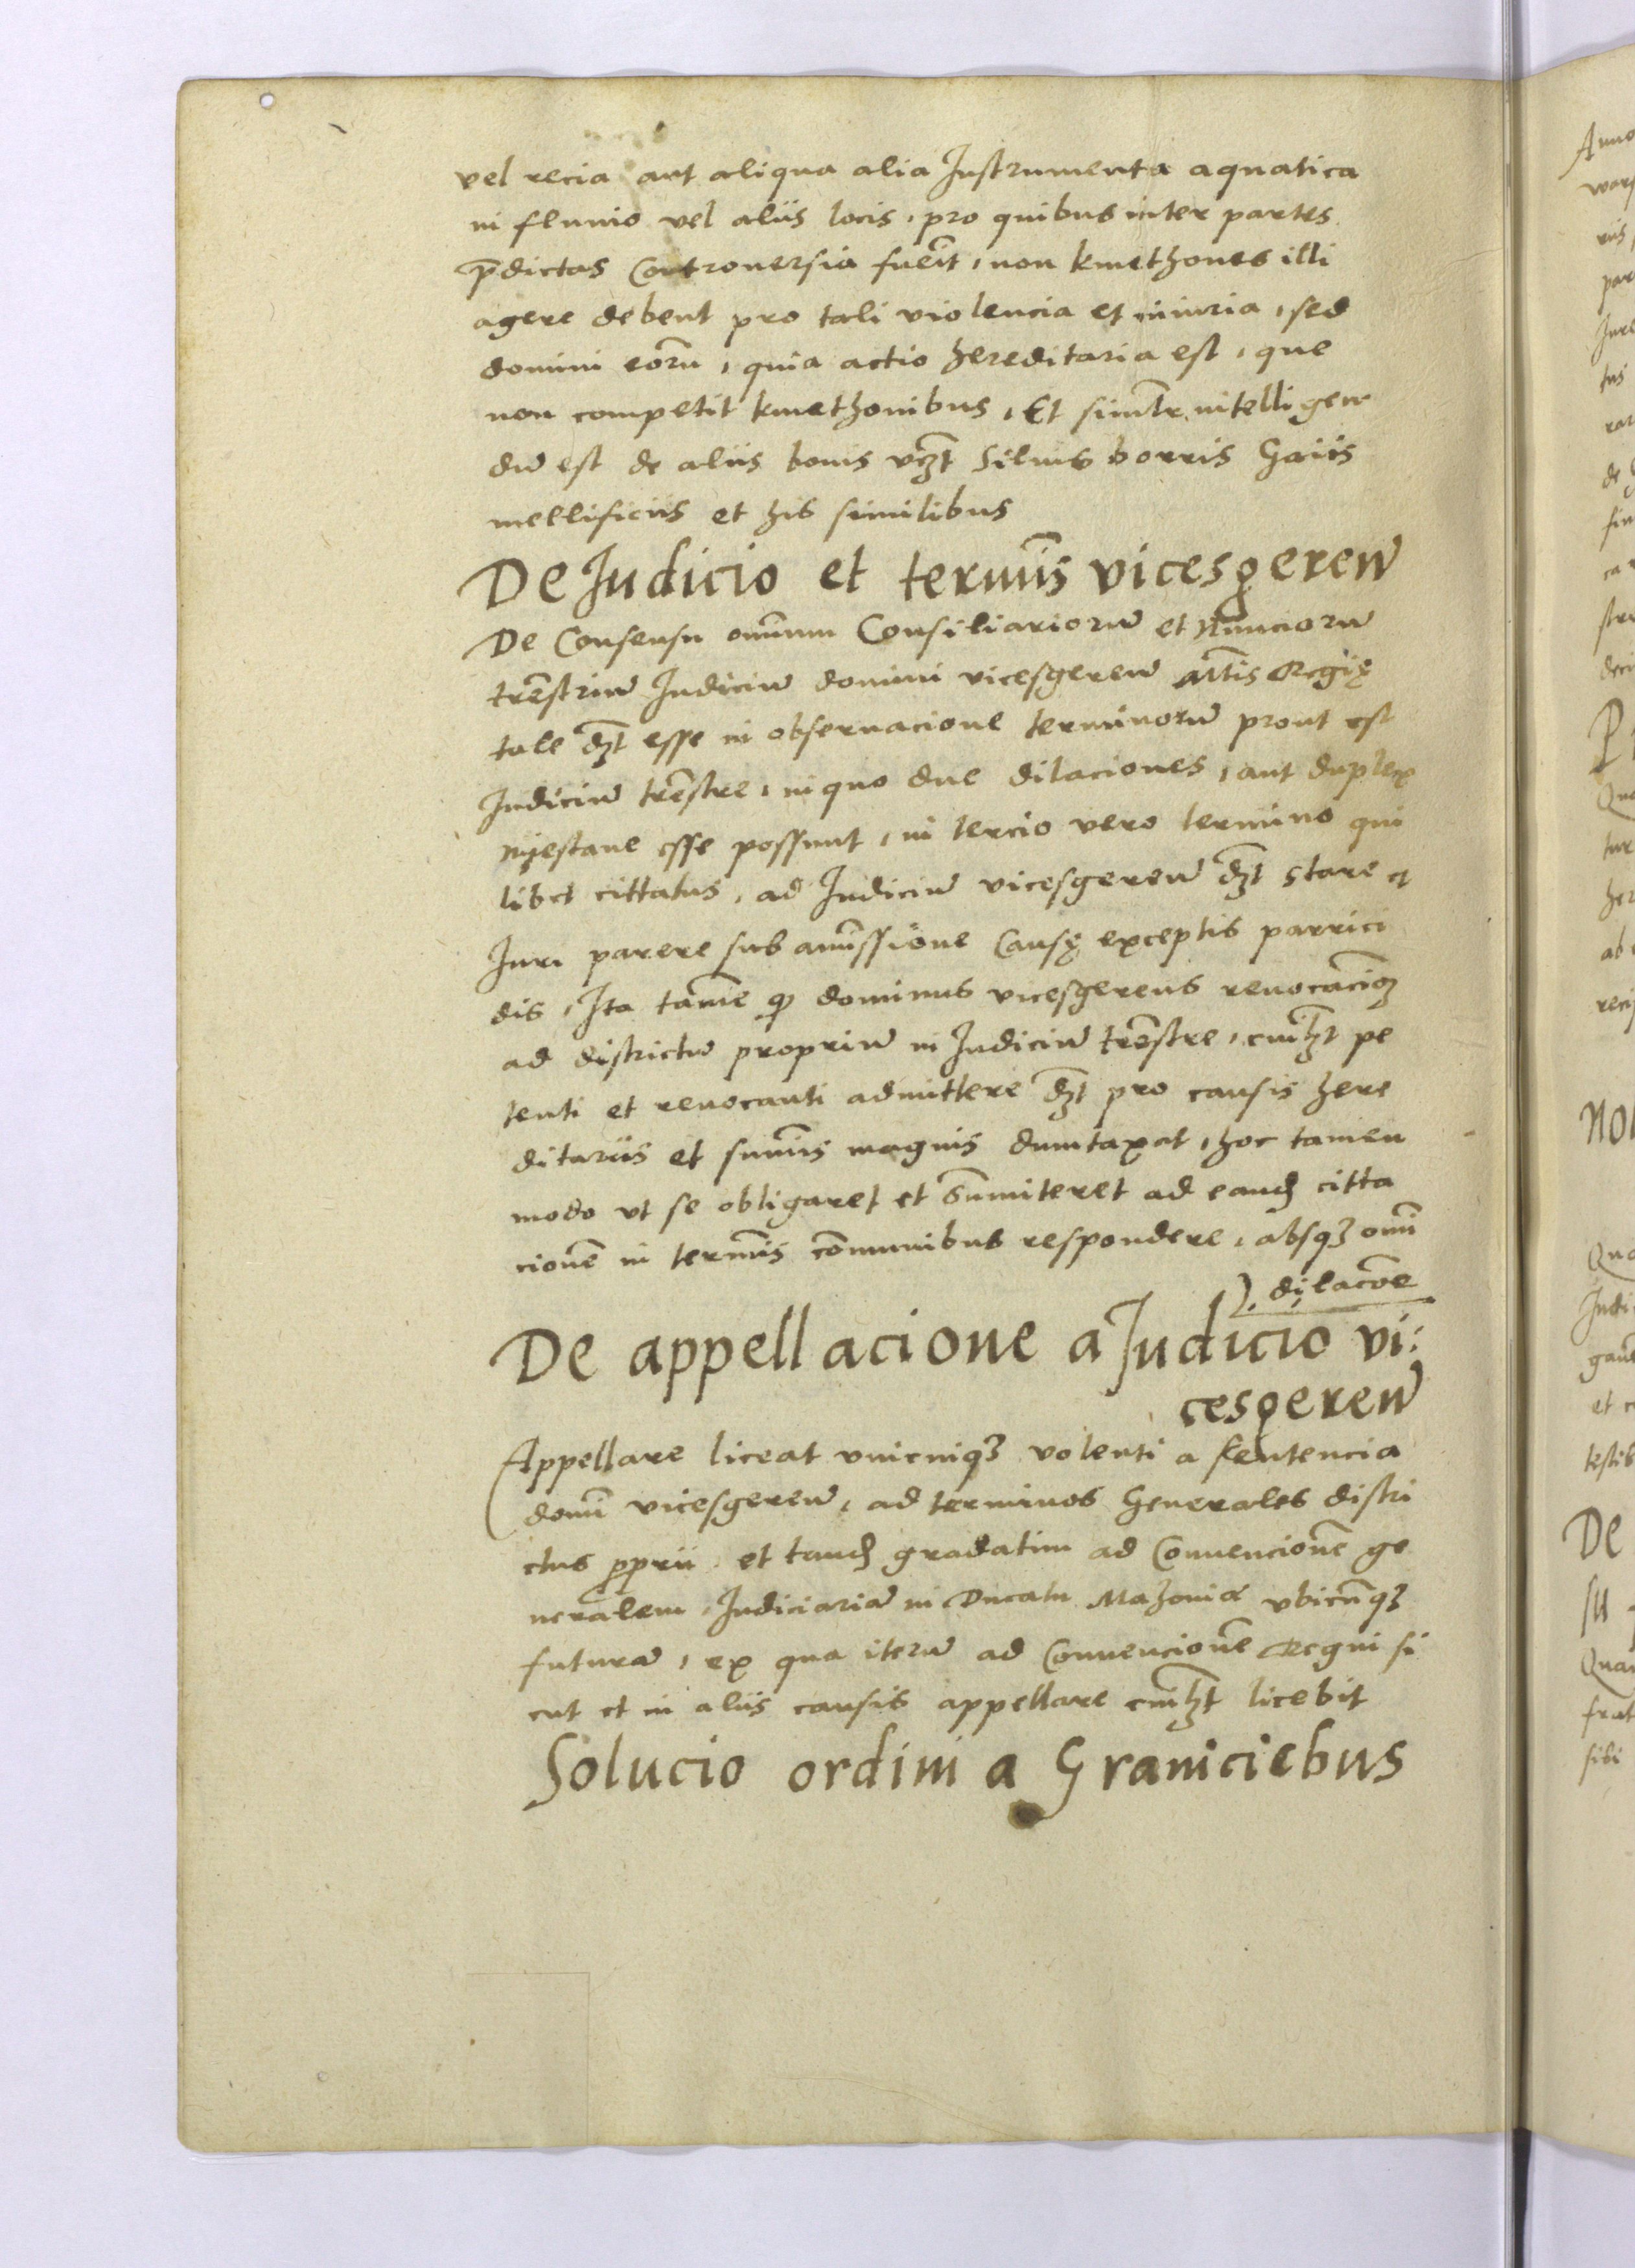 vel recia aut aliqua alia Instrumenta aquatica
in fluuio vel aliis locis, pro quibus inter partes
p̄dictas Controuersia fuer̄it, non kmethones illi
agere debent pro tali violencia et iniuria, sed
domini eor̄u, quia actio hereditaria est, que
non competit kmethonibus, Et simlr̄ intelligen
dū est de aliis bonis vꝫt̄ Siluis borris Gaiis
mellificiis et his similibus
De Iudicio et termīs vicesgereñ
De Consensu omnium Consiliariorū et Nunciorū
tr̄estriū Iudiciū domini vicesgereñ Mt̄is Regię
tale dꝫt̄ esse in obseruacione terminorū prout est
Iudiciū tr̄estre, in quo due dilaciones, aut duplex
nyestane esse possunt, in tercio vero termino qui
libet cittatus, ad Iudiciū vicesgereñ dꝫt̄ stare et
Iuri parere sub amīssione Causę exceptis parrici
dis, Ita tamē ꝙ dominus vicesgerens reuocacioēꝫ
ad districtū propriū in Iudiciū tr̄estre, cuilꝫt̄ pe
tenti et reuocanti admittere dꝫt̄ pro causis here
ditariis et sum̄is magnis dumtaxat, hoc tamen
modo vt se obligaret et Sum̄iteret ad eandꝫ citta
cionē in termīs com̄unibus respondere, absqꝫ omī
dilacōe
De appellacione a Iudicio vi:
cesgereñ
Appellare liceat vnicuiqꝫ volenti a sentencia
domī vicesgereñ, ad terminos Generales distri
ctus ꝓprii et tandꝫ gradatim ad Conuencionē ge
neralem Iudiciariā in Ducatu Mazoviæ vbicūqꝫ
futurā, ex qua iterū ad Conuencionē Regni si
cut et in aliis causis appellare cuilꝫt̄ licebit
Solucio ordini a Graniciebus